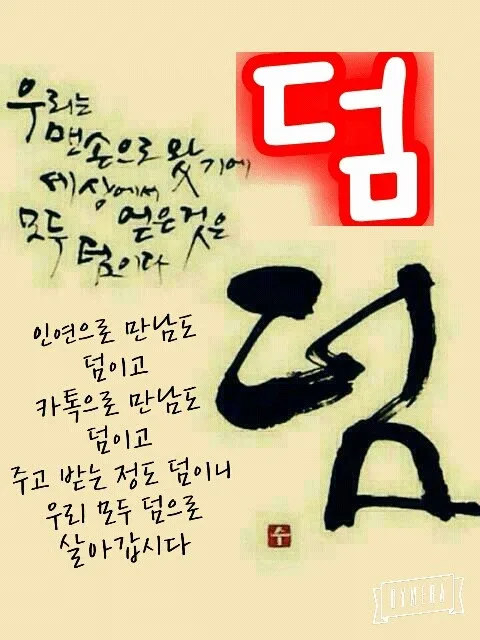 덤
우리는
맨손으로 왔기에
세상에서
얻은것은
모두
덤이다
덤
인연으로 만남도
덤이고
카톡으로 만남도
덤이고
주고 받는 정도 덤이니
우리 모두 덤으로
살아갑시다
수